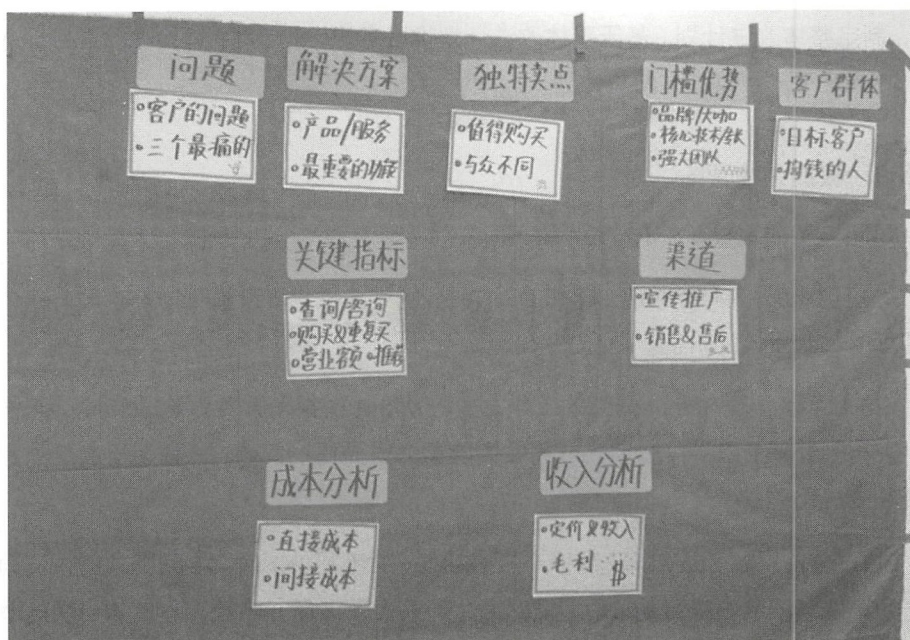 问题
•客户的问题
•三个最痛的
解决方案
•产品/服务
•最重要的功能
独特卖点
•值得购买
•与众不同
门槛优势
•品牌/大咖
•核心技术/
•强大团队
客户群体
•目标客户
•掏钱的人
关键指标
•查询/咨询
•购买&重复买
•营业额 •推荐
渠道
•宣传推广
•销售&售后
成本分析
•直接成本
•间接成本
收入分析
•定价&收入
•毛利 $